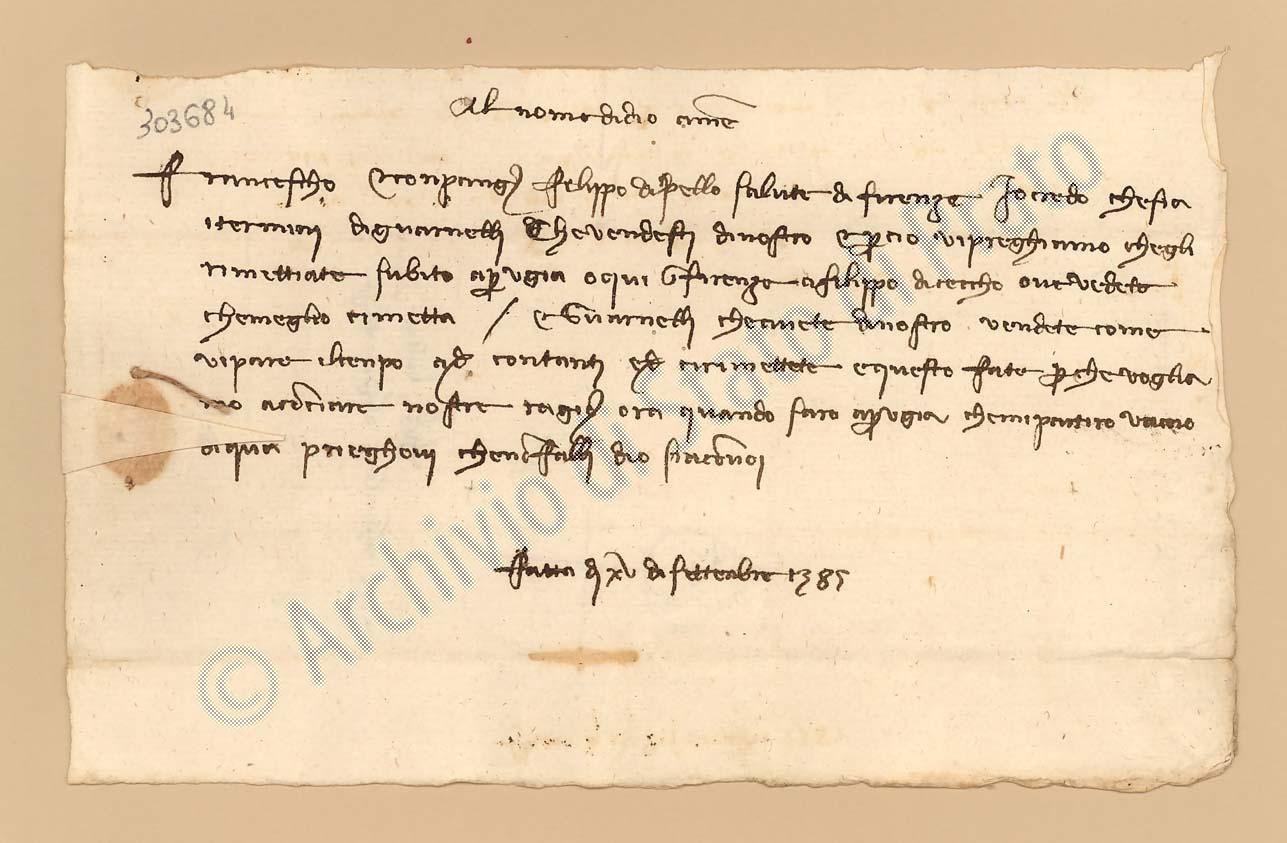 303684
Al nome di dio amen
Francescho e conpangni Felippo di Pello salute di firenze Io credo che sia
i termini di guarnelli che vendesti di nostro e perciò vi preghiamo che gli
rimettiate subito a perugia o qui in firenze a filippo di ceccho ove vedete
che meglio ci metta / e guarnelli che avete di nostro vendete come
vi pare il tenpo a d. contanti e d. ci rimettete e questo fate perche voglia
mo aconciare nostre ragioni ora quando saro a perugia che mi partiro vaccio
di qua priegovi che non falli dio sia con voi
Fatta dì xv di settenbre 1385
© Archivio di Stato di Prato